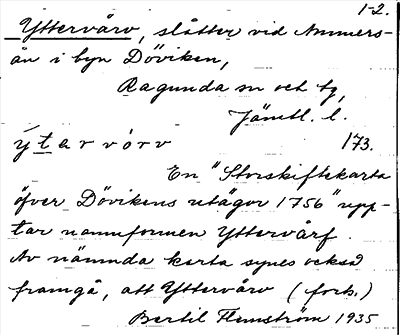 1-2.
Yttervårv, slåtter vid Ammers-
ån i byn Döviken,
Ragunda sn och tg,
Jämtl. l.
ýtervórv 173.
En "Storskifteskarta
öfver Dövikens utägor 1756" upp-
tar namnformen Yttervårf.
Av nämnda karta synes också
framgå, att Yttervårv (forts.)
Bertil Flemström 1935